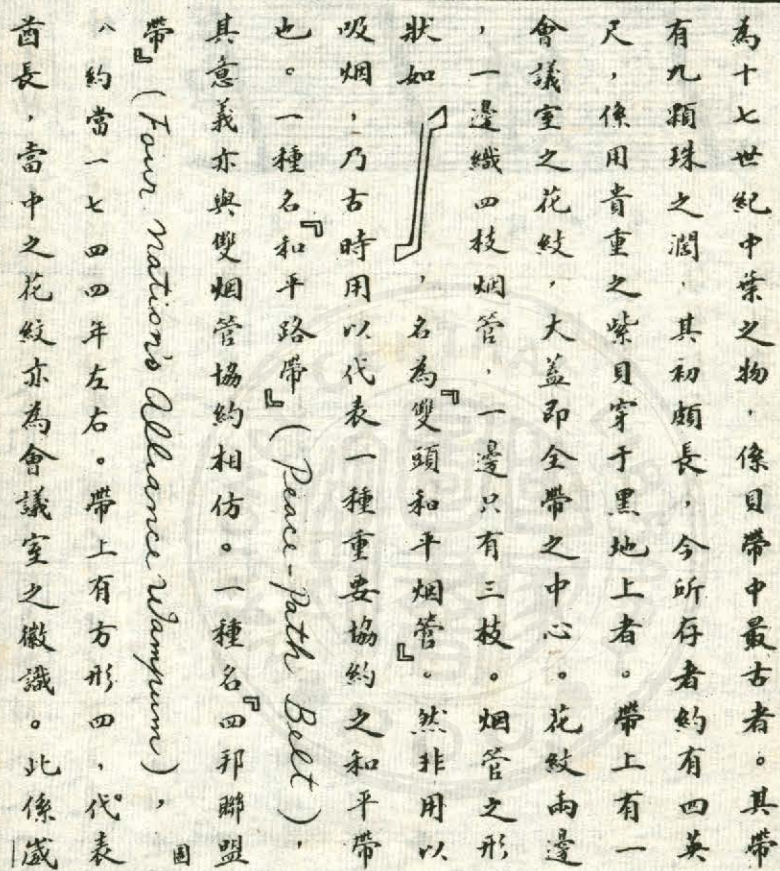 為十七世紀中葉之物，係貝帶中最古者。其帶
有九顆珠之濶，其初頗長，今所存者約有四英
尺，係用貴重之紫貝穿于黑地上者。帶上有一
會議室之花紋，大蓋即全帶之中心。花紋兩邊
，一邊織四枝烟管，一邊只有三枝。烟管之形
狀如，名為『雙頭和平烟管』。然非用以
吸烟，乃古時用以代表一種重要協約之和平帶
也。一種名『和平路帶』(Peace-Path Belt)，
其意義亦與雙烟管協約相仿。一種名『四邦聯盟
帶』(Four Nation's Alliance Wampum)，
約當一七四四年左右。帶上有方形四、代表
酋長，當中之花紋亦為會議室之徽識。此係